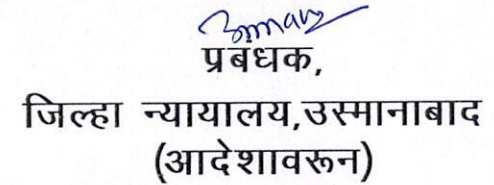 प्रबंधक,
जिल्हा न्यायालय,उस्मानाबाद
(आदेशावरून)